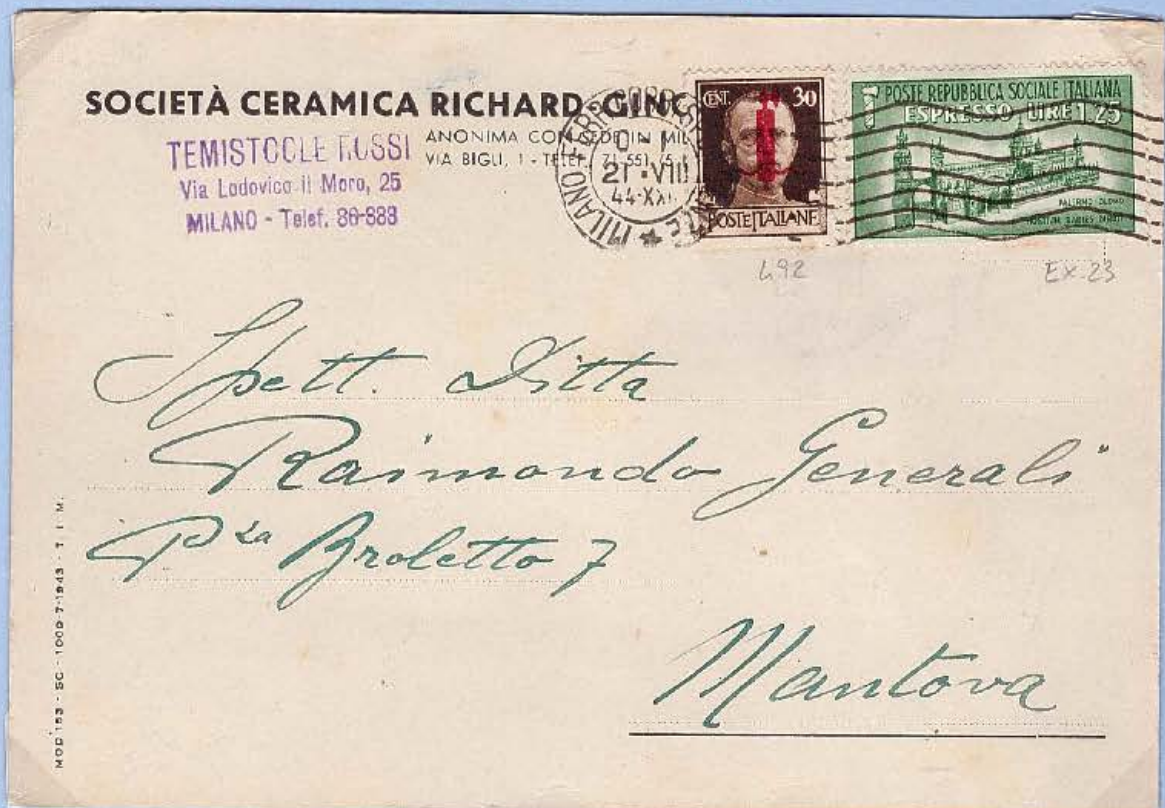 SOCIETÀ CERAMICA RICHARD-GINO
ANONIMA CON SEDE IN MIL
VIA BIGLI, 1 - TELEF. 71 551
TEMISTOCLE ROSSI
Via Lodovico il Moro, 25
MILANO - Telef. 30-888
MILANO
21 · VIII
44-XXII
CENT. 30
POSTE ITALIANE
POSTE REPUBBLICA SOCIALE ITALIANA
ESPRESSO LIRE 1,25
PALERMO DUOMO
492
EX 23
Spett. Ditta
Raimondo Generali
P.za Broletto 7
Mantova
MOD 153 - SC - 1009-7-1943 - T. I. M.